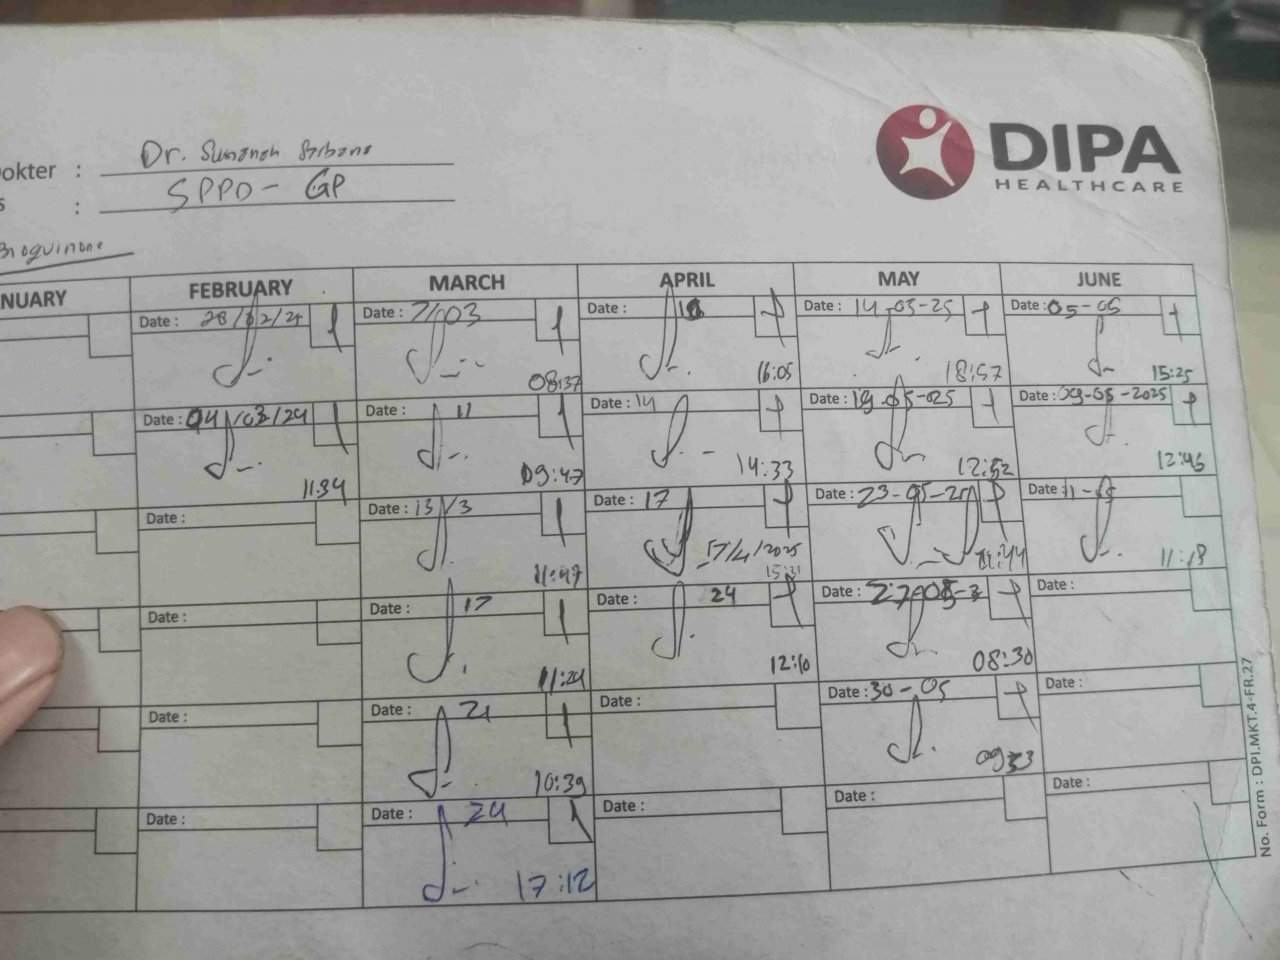 DIPA
HEALTHCARE
okter : Dr. Sumanah
s : SPPD - GP
NUARY FEBRUARY MARCH APRIL MAY JUNE
Date : 28/02/25 Date : 7/03 Date : Date : 14-05-25 Date : 05-05
08:37 16:05 18:57 15:25
Date : 04/03/24 Date : 11 Date : 14 Date : 19-05-025 Date : 09-05-2025
11:34 09:47 14:33 12:52 12:45
Date : Date : 13/3 Date : 17 Date : 23-05-25 Date :
11:47 17/4/2025 15:31 11:18
Date : Date : 17 Date : 24 Date : Date :
11:24 12:10 08:30
Date : Date : 21 Date : Date : 30-05 Date :
10:39 09:33
Date : Date : 24 Date : Date : Date :
17:12
No. Form : DPI.MKT.4-FR.27